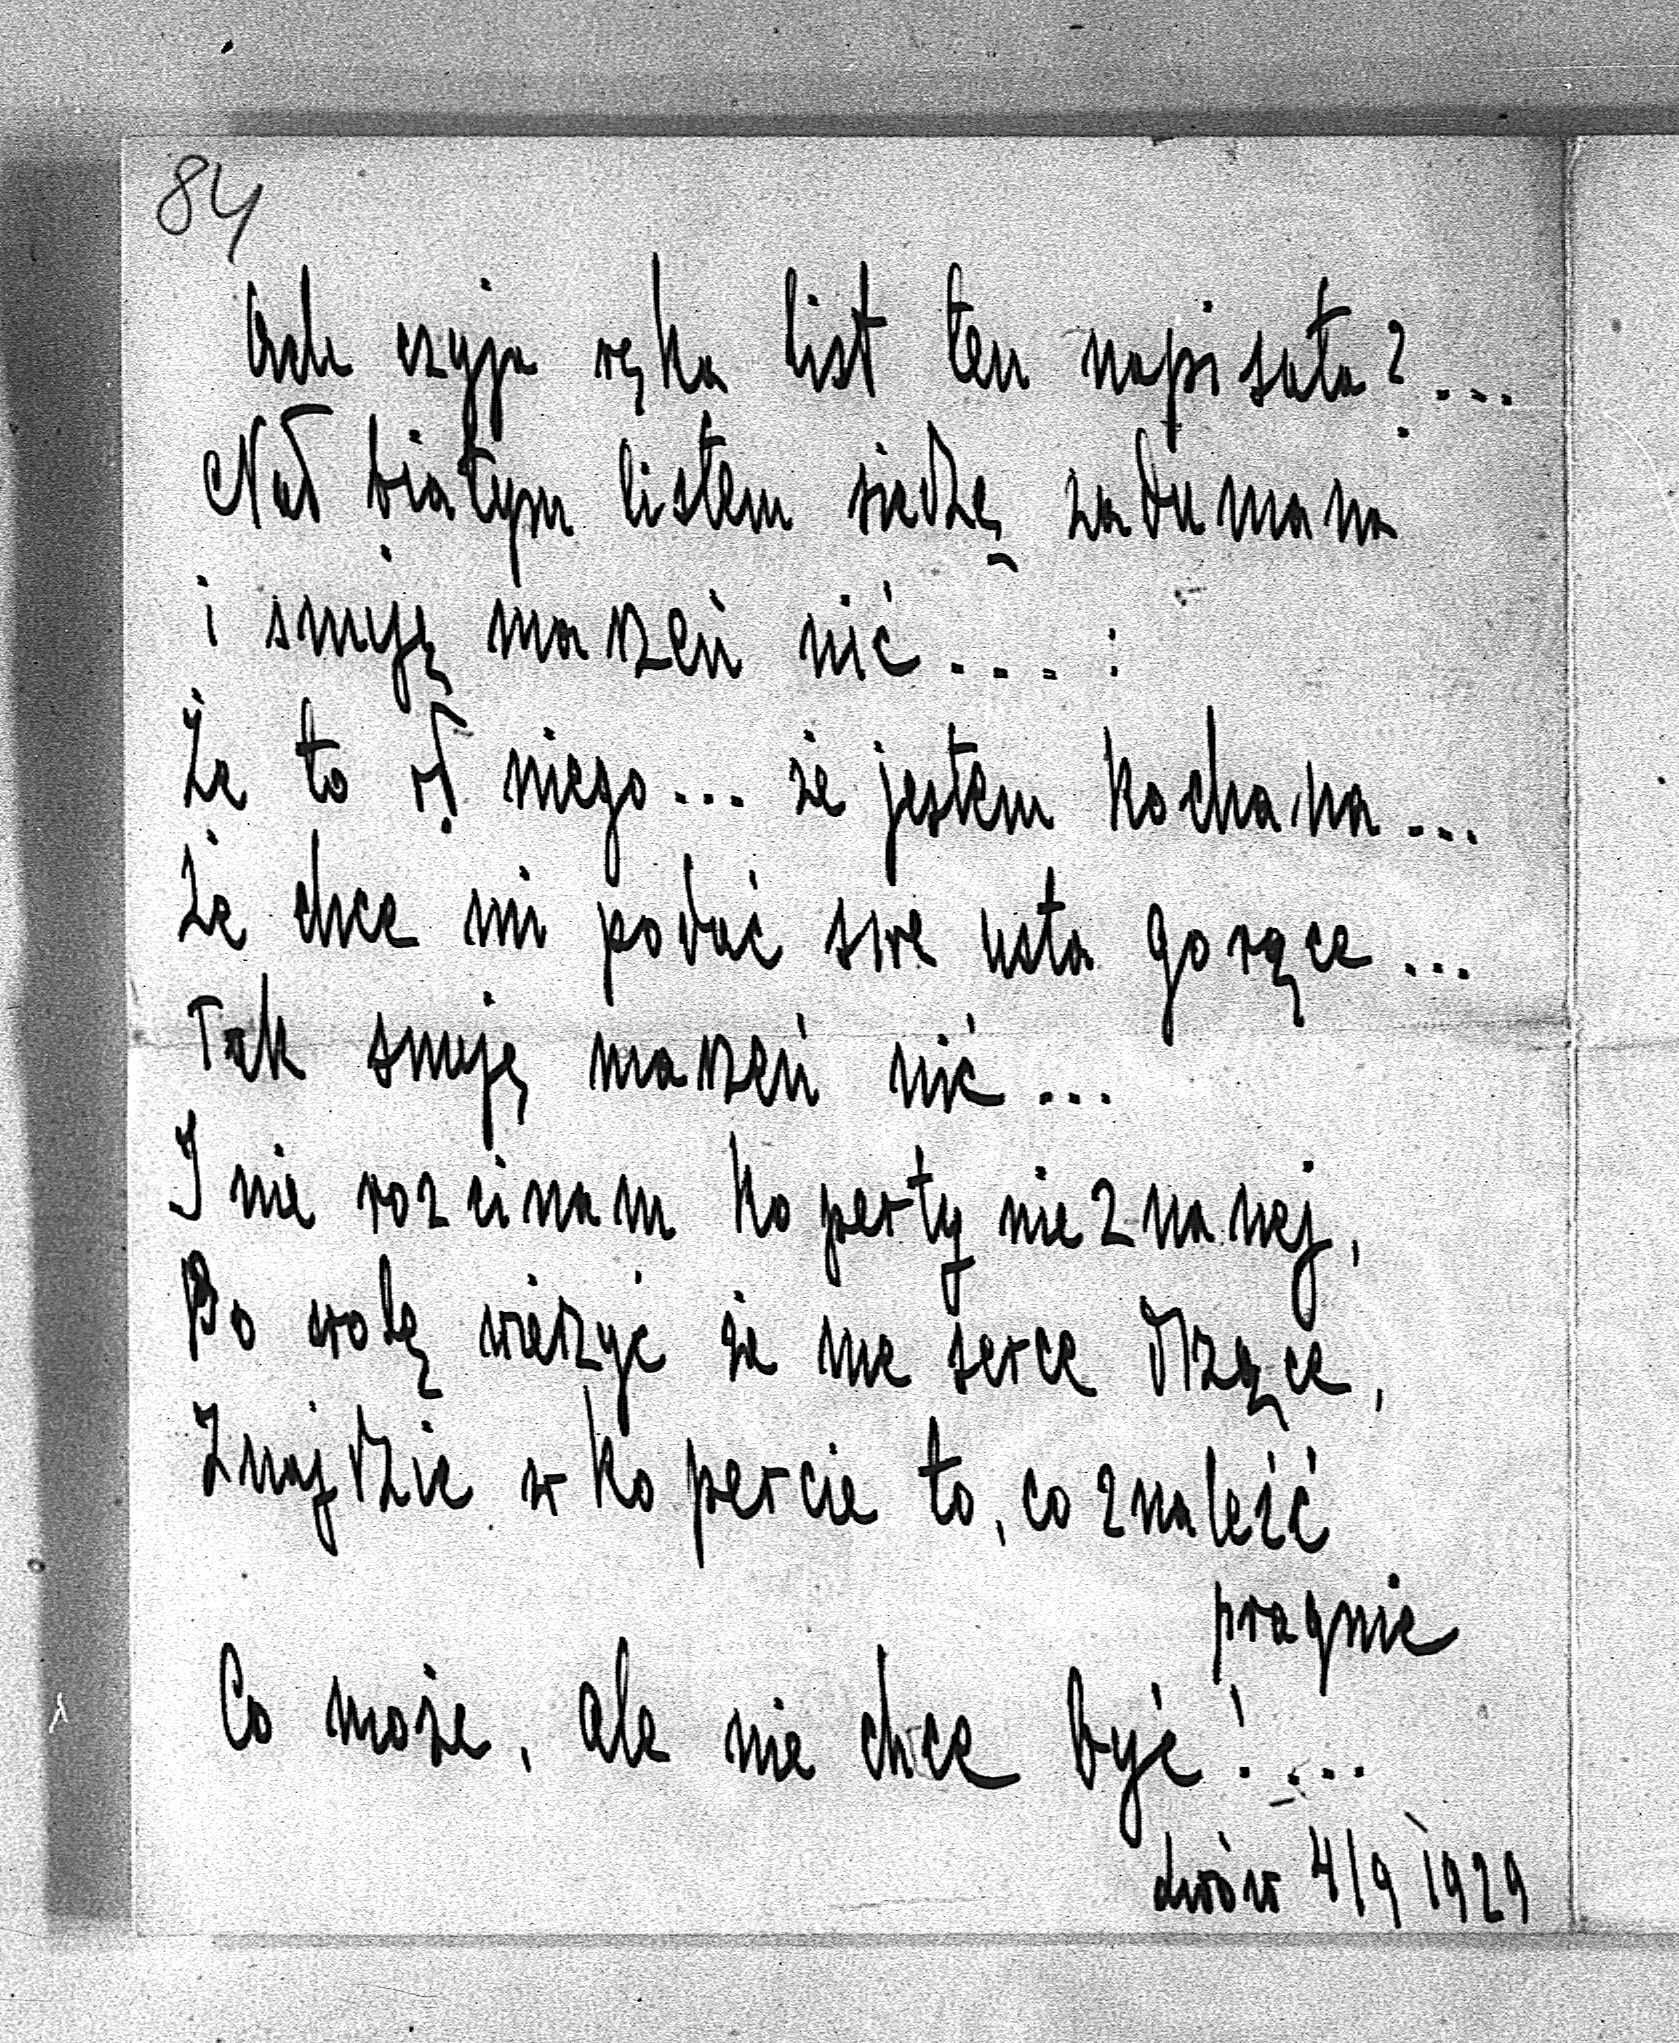 84
Ach czyja ręka list ten napisała?...
Nad białym listem siedzę zadumana
i snuję marzeń nić....:
Że to od niego... że jestem kochana...
Że chce mi podać swe usta gorące...
Tak snuję marzeń nić...
I nie rozcinam koperty nieznanej,
Bo wolę wierzyć że me serce drżące,
Znajdzie w kopercie to, co znaleźć
pragnie
Co może, ale nie chce być!....
Lwów 4/9 1929